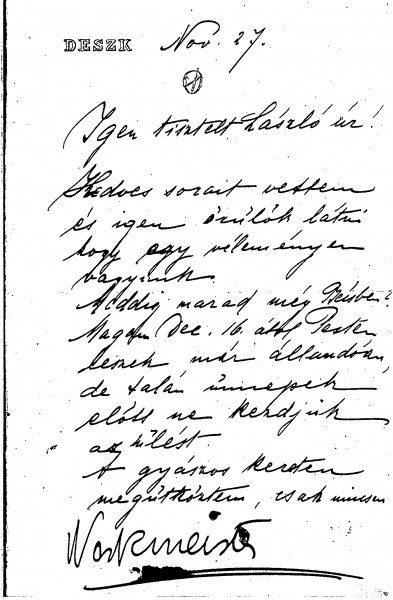 DESZK Nov. 27.
Igen tisztelt László úr!
Kedves sorait vettem
és igen örülök látni
hogy egy véleményen
vagyunk.
Meddig marad még Bécsben?
Magam Dec. 16. által Pesten
leszek már állandóan,
de talán ünnepek
előtt ne kezdjük
az ülést
A gyászos kereten
megütköztem, csak nincsen